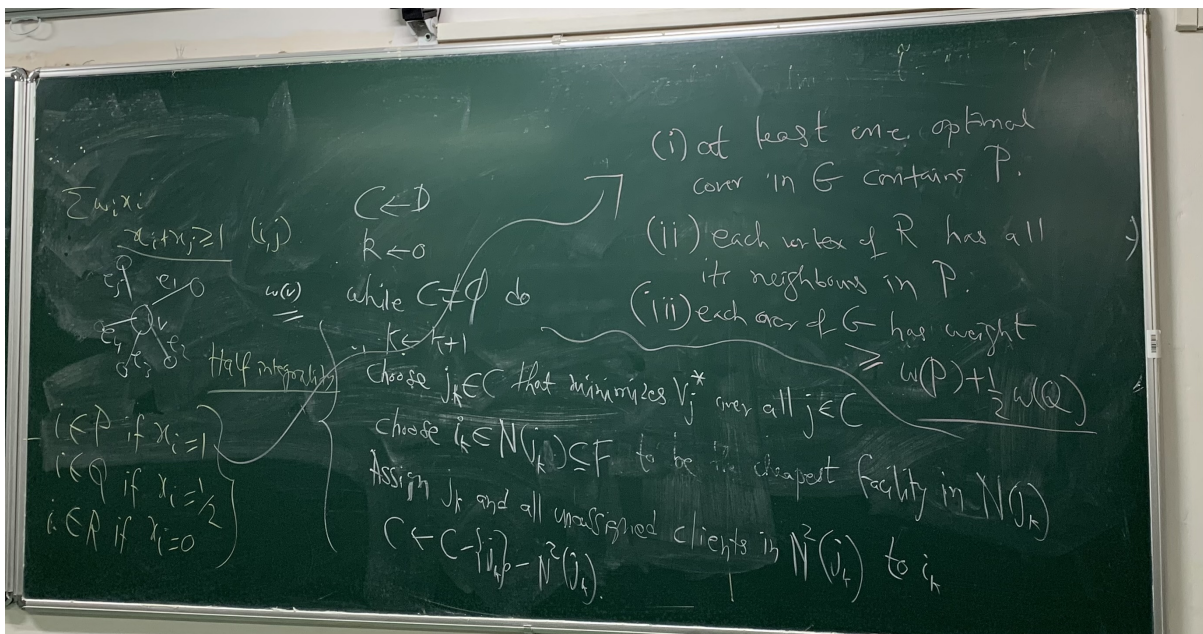 Σ wᵢxᵢ
xᵢ+xⱼ≥1 (i,j)
e₁
v
e₄
e₃
e₂
w(v)
Half integrality
i∈P if xᵢ=1
i∈Q if xᵢ=1/2
i∈R if xᵢ=0
C←D
k←0
while C≠φ do
k←k+1
choose jₖ∈C that minimizes Vⱼ* over all j∈C
choose iₖ∈N(jₖ)⊆F to be the cheapest facility in N(jₖ)
Assign jₖ and all unassigned clients in N²(jₖ) to iₖ
C←C-{jₖ}-N²(jₖ).
(i) at least one optimal
cover in G contains P.
(ii) each vertex of R has all
its neighbours in P.
(iii) each cover of G has weight
≥ w(P)+1/2 w(Q)